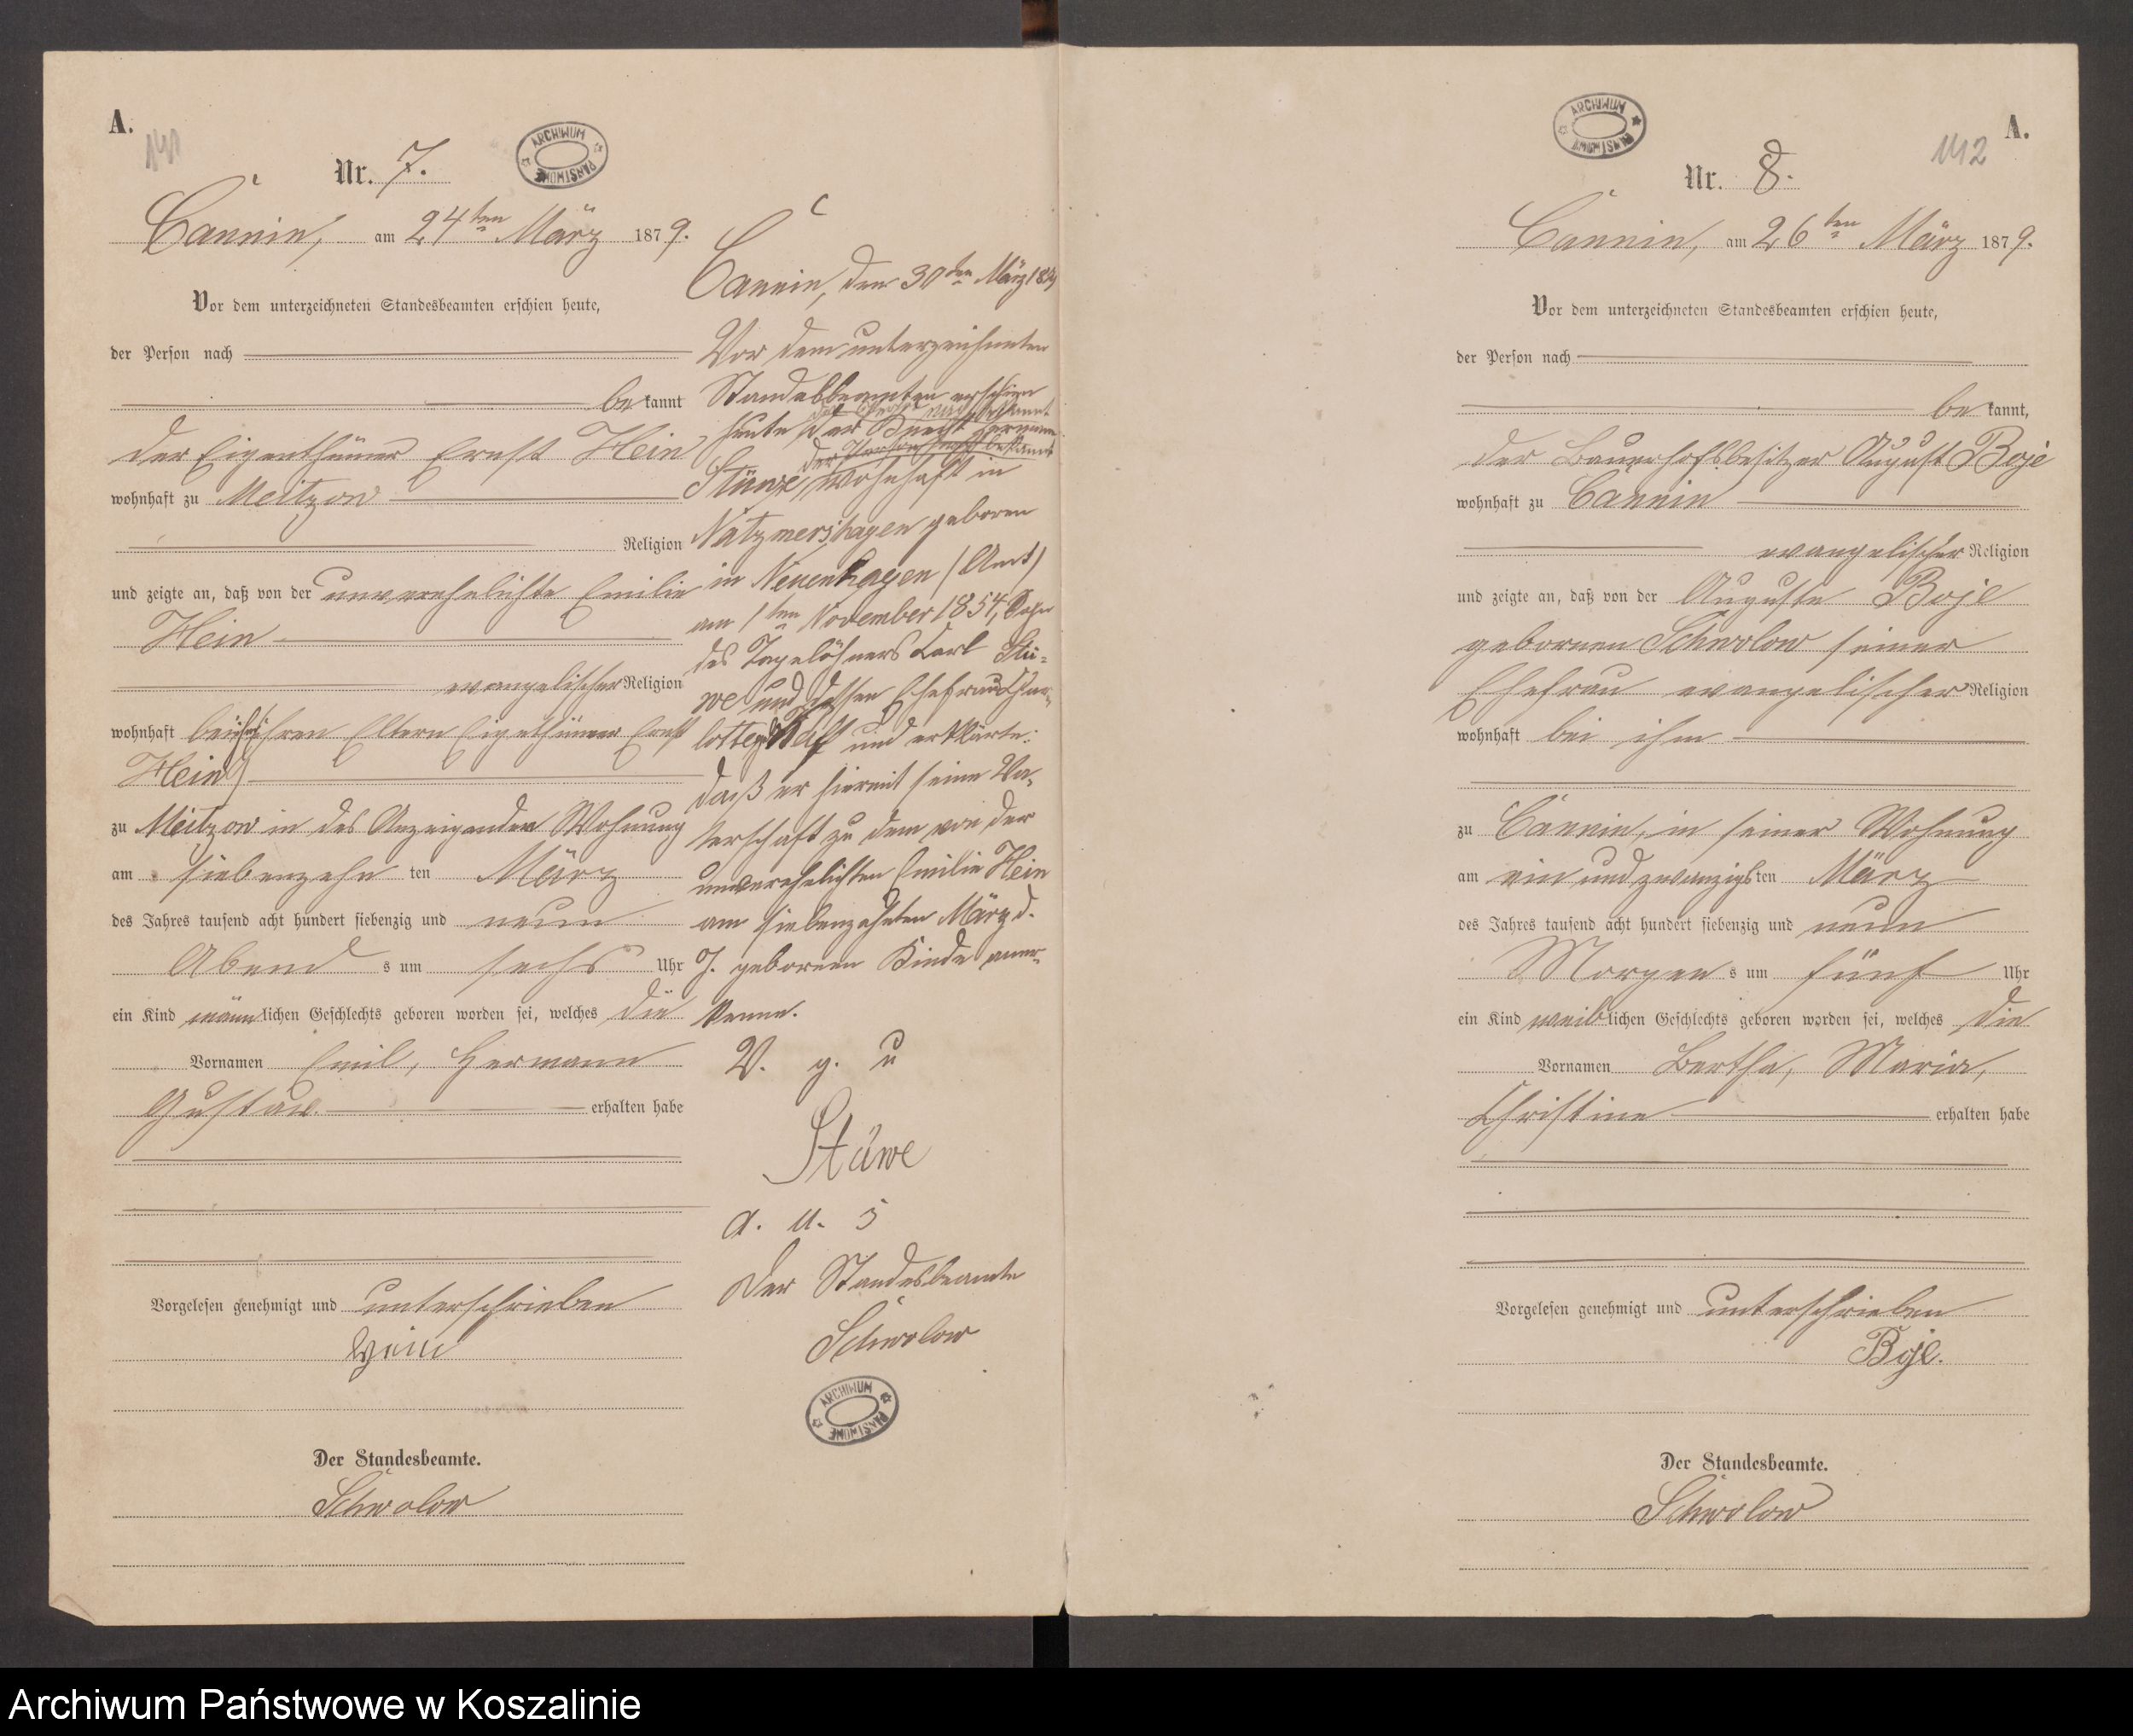 A.
141
Nr. 7.
ARCHIWUM PAŃSTWOWE
Cannin, am 24ten März 1879.
Vor dem unterzeichneten Standesbeamten erschien heute,
der Person nach
be kannt
der Eigenthümer Ernst Hein
wohnhaft zu Meitzow
Religion
und zeigte an, daß von der unverehelichte Emilie
Hein
evangelischer Religion
wohnhaft bei ihren Eltern Eigenthümer Ernst
Hein
zu Meitzow in des Anzeigenden Wohnung
am siebenzehn ten März
des Jahres tausend acht hundert siebenzig und neun
Abend s um sechs Uhr
ein Kind männlichen Geschlechts geboren worden sei, welches die
Vornamen Emil, Hermann
Gustav. erhalten habe
Vorgelesen genehmigt und unterschrieben
Hein
Der Standesbeamte.
Schwolow
Cannin, den 30ten März 1879
Vor dem unterzeichneten
Standesbeamten erschien
der Person nach bekannt
heute der Knecht Hermann
der Person nach bekannt
Stüwe, wohnhaft in
Natzmershagen geboren
in Neuenhagen (Amt)
am 1ten November 1854, Sohn
des Tagelöhners Carl Stü-
we und dessen Ehefrau Char-
lotte und erklärte:
daß er hiermit seine Va-
terschaft zu dem von der
unverehelichten Emilie Hein
am siebenzehnten März d.
J. gebornen Kinde aner-
kenne.
V. g. u
Stüwe
a. u. s
Der Standesbeamte
Schwolow
ARCHIWUM PAŃSTWOWE
ARCHIWUM PAŃSTWOWE
142
A.
Nr. 8.
Cannin, am 26ten März 1879.
Vor dem unterzeichneten Standesbeamten erschien heute,
der Person nach
be kannt,
der Bauerhofsbesitzer August Boje
wohnhaft zu Cannin
evangelischer Religion
und zeigte an, daß von der Auguste Boje
gebornen Schwolow seiner
Ehefrau evangelischer Religion
wohnhaft bei ihm
zu Cannin, in seiner Wohnung
am ein und zwanzigsten März
des Jahres tausend acht hundert siebenzig und neun
Morgen s um fünf Uhr
ein Kind weiblichen Geschlechts geboren worden sei, welches die
Vornamen Bertha, Maria,
Christine erhalten habe
Vorgelesen genehmigt und unterschrieben
Boje.
Der Standesbeamte.
Schwolow
Archiwum Państwowe w Koszalinie